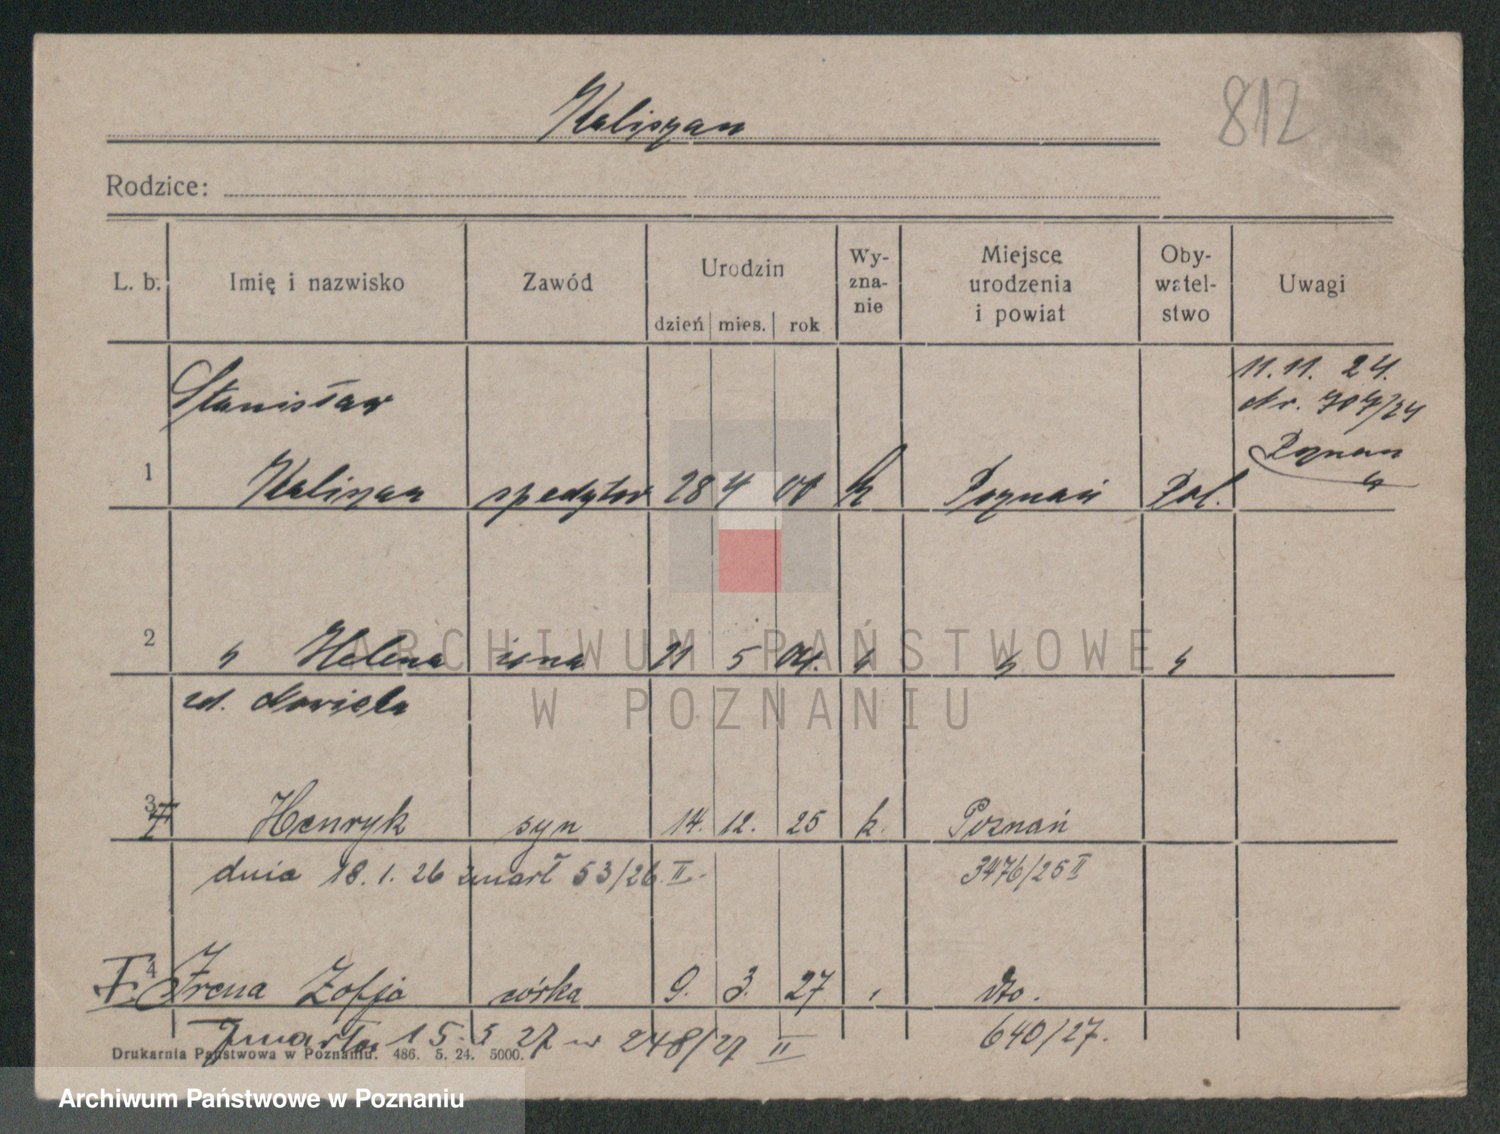 Kaliszan
812
Rodzice:
L. b. Imię i nazwisko Zawód Urodzin dzień mies. rok Wy-zna-nie Miejsce urodzenia i powiat Oby-watel-stwo Uwagi
Stanisław 11. 11. 24.
Nr. 707/24
Poznań
1 Kaliszan spedytor 28 4 00 k Poznań Pol.
2 " Helena żona 21 5 04. " " "
zd.
3 Henryk syn 14. 12. 25 k. Poznań
dnia 18. 1. 26 zmarł 53/26 II. 3476/25 II
4 Irena Zofja córka 9. 3. 27 dto.
Zmarła 15. 5 27 nr 248/27 II 640/27.
Drukarnia Państwowa w Poznaniu. 486. 5. 24. 5000.
ARCHIWUM PAŃSTWOWE
W POZNANIU
Archiwum Państwowe w Poznaniu